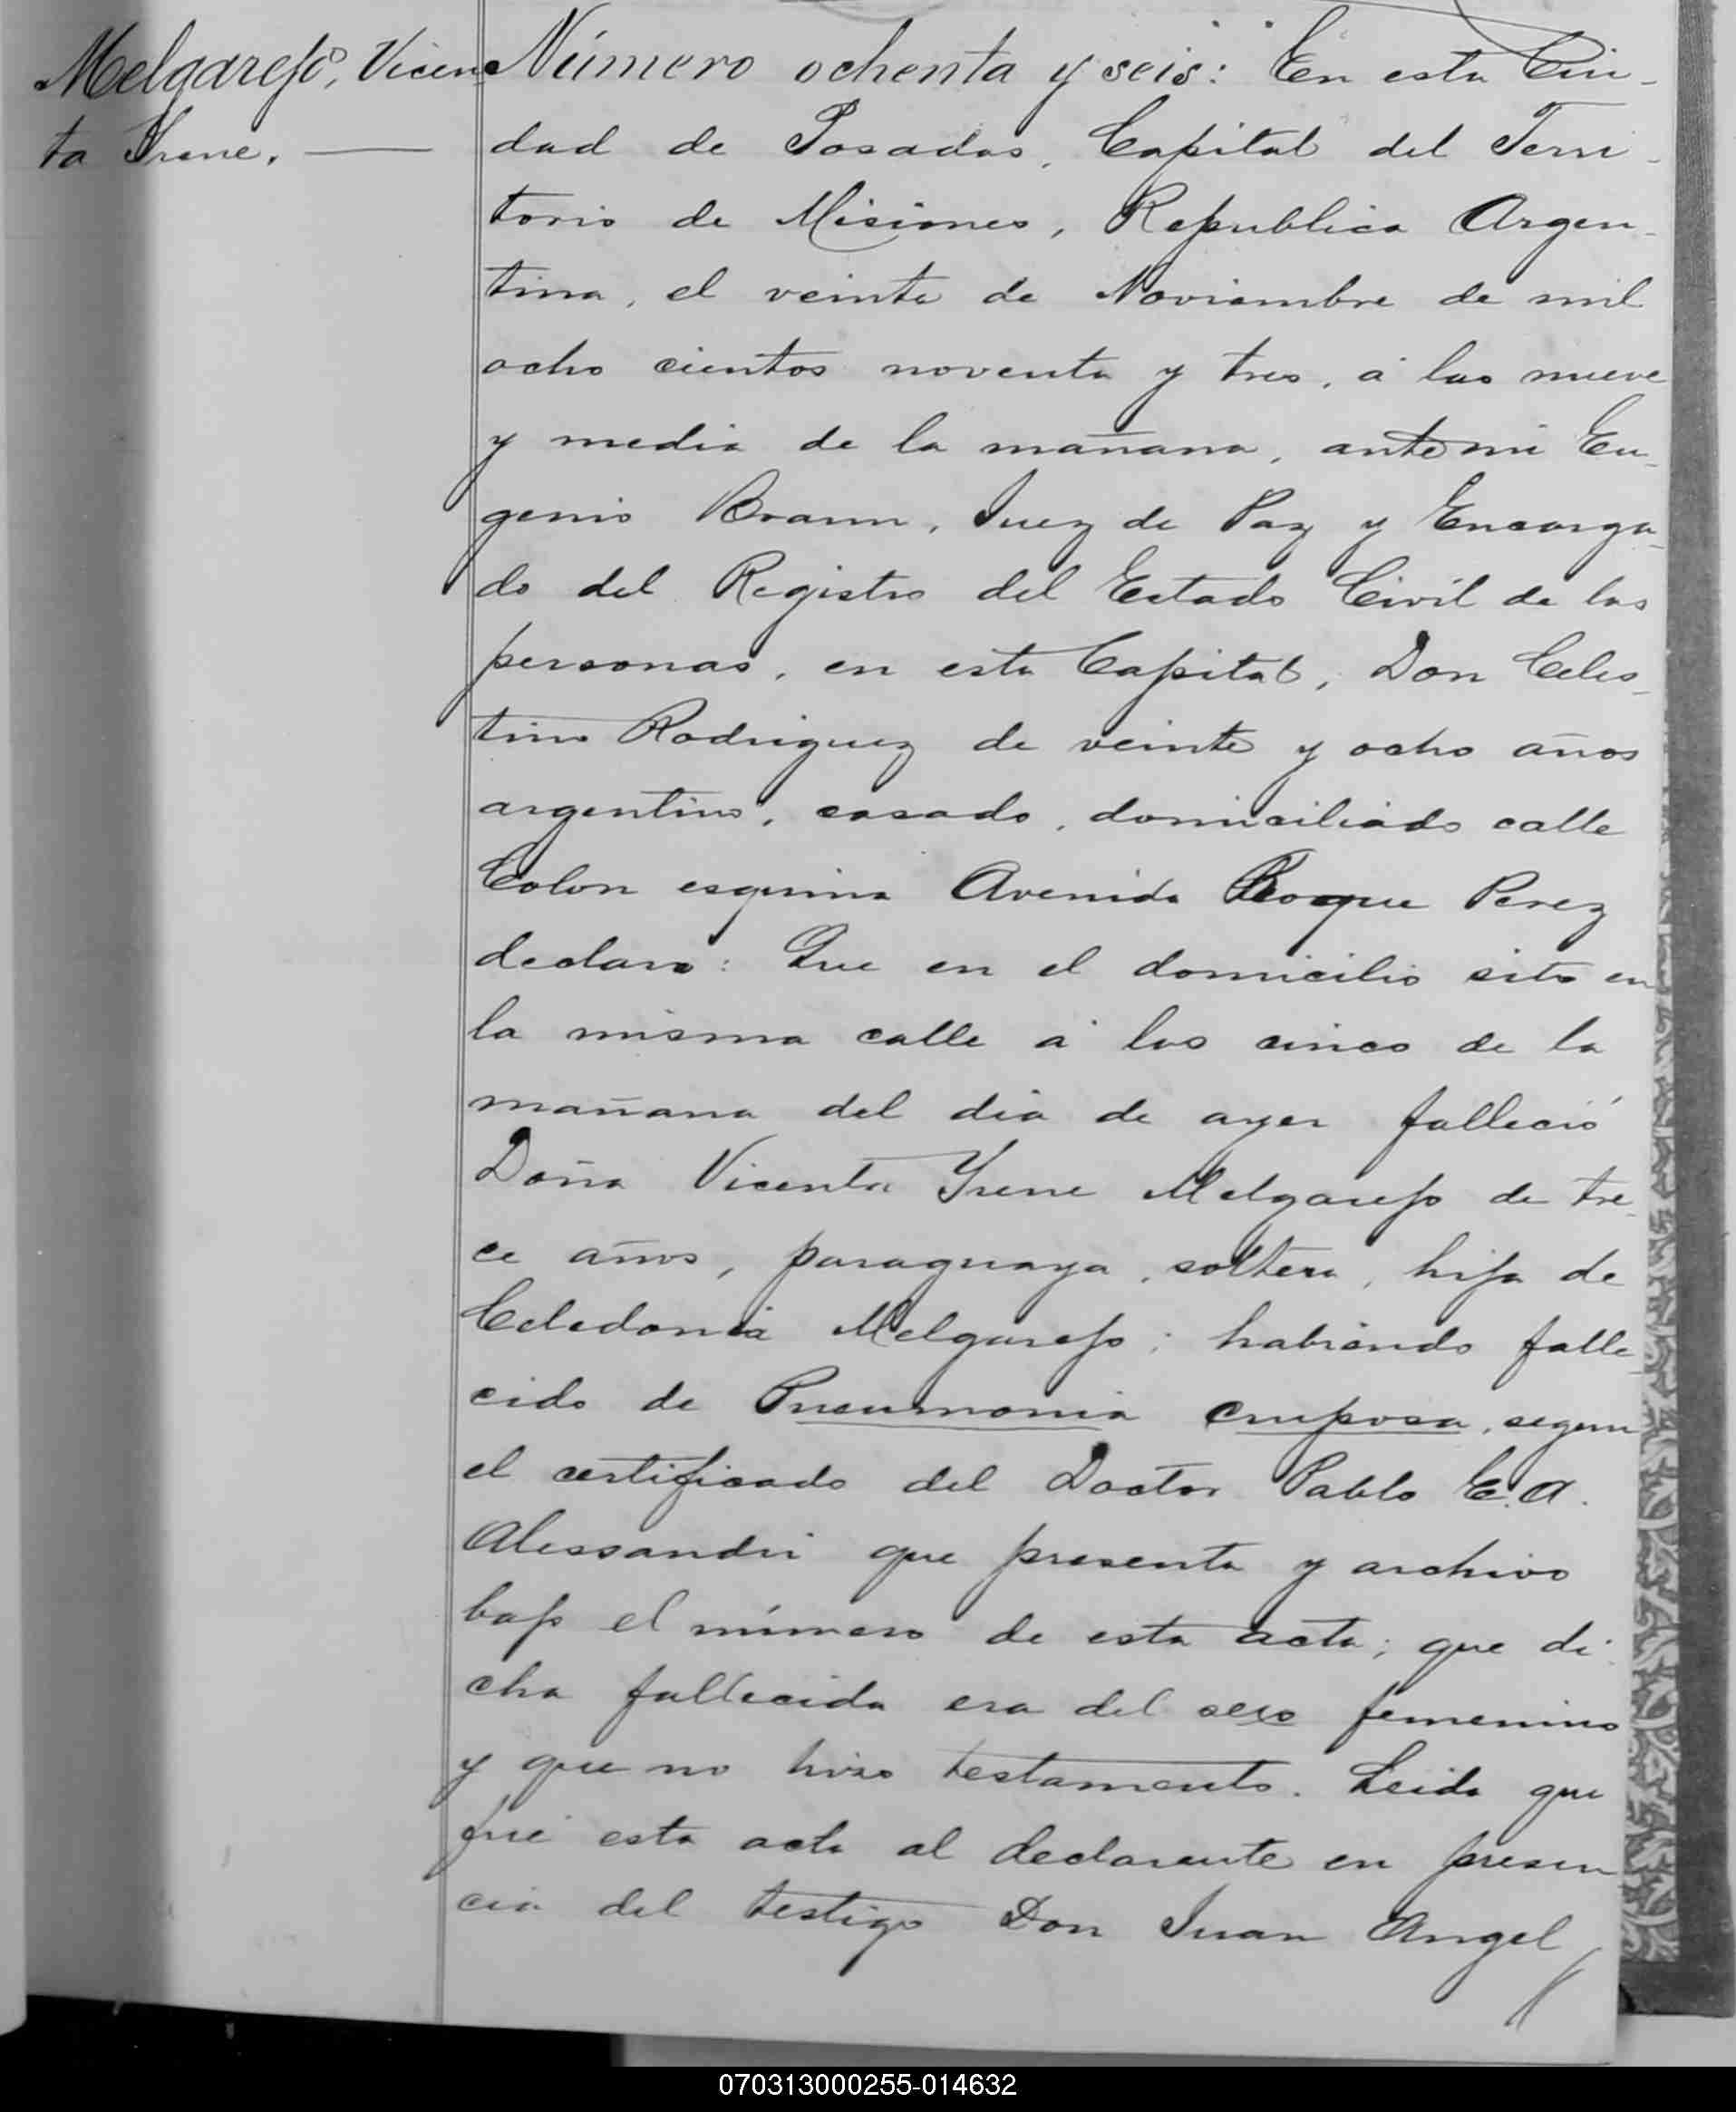 Melgarejo, Vicen
ta Irene.
Número ochenta y seis: En esta Ciu-
dad de Posadas, Capital del Terri-
torio de Misiones, Republica Argen-
tina, el veinte de Noviembre de mil
ocho cientos noventa y tres, á las nueve
y media de la mañana, ante mi Eu-
genio Braun, Juez de Paz y Encarga-
do del Registro del Estado Civil de las
personas, en esta Capital, Don Celes-
tino Rodriguez de veinte y ocho años
argentino, casado, domiciliado calle
Colon esquina Avenida Roque Perez
declaro: Que en el domicilio sito en
la misma calle á las cinco de la
mañana del dia de ayer falleció
Doña Vicenta Yrene Melgarejo de tre-
ce años, paraguaya, soltera, hija de
Celedonia Melgarejo; habiendo falle-
cido de Pneumonia cruposa, segun
el certificado del Doctor Pablo E. A.
Alessandri que presenta y archivo
bajo el número de esta acta; que di-
cha fallecida era del sexo femenino
y que no hizo testamento. Leida que
fué esta acta al declarante en presen
cia del testigo Don Juan Angel
070313000255-014632